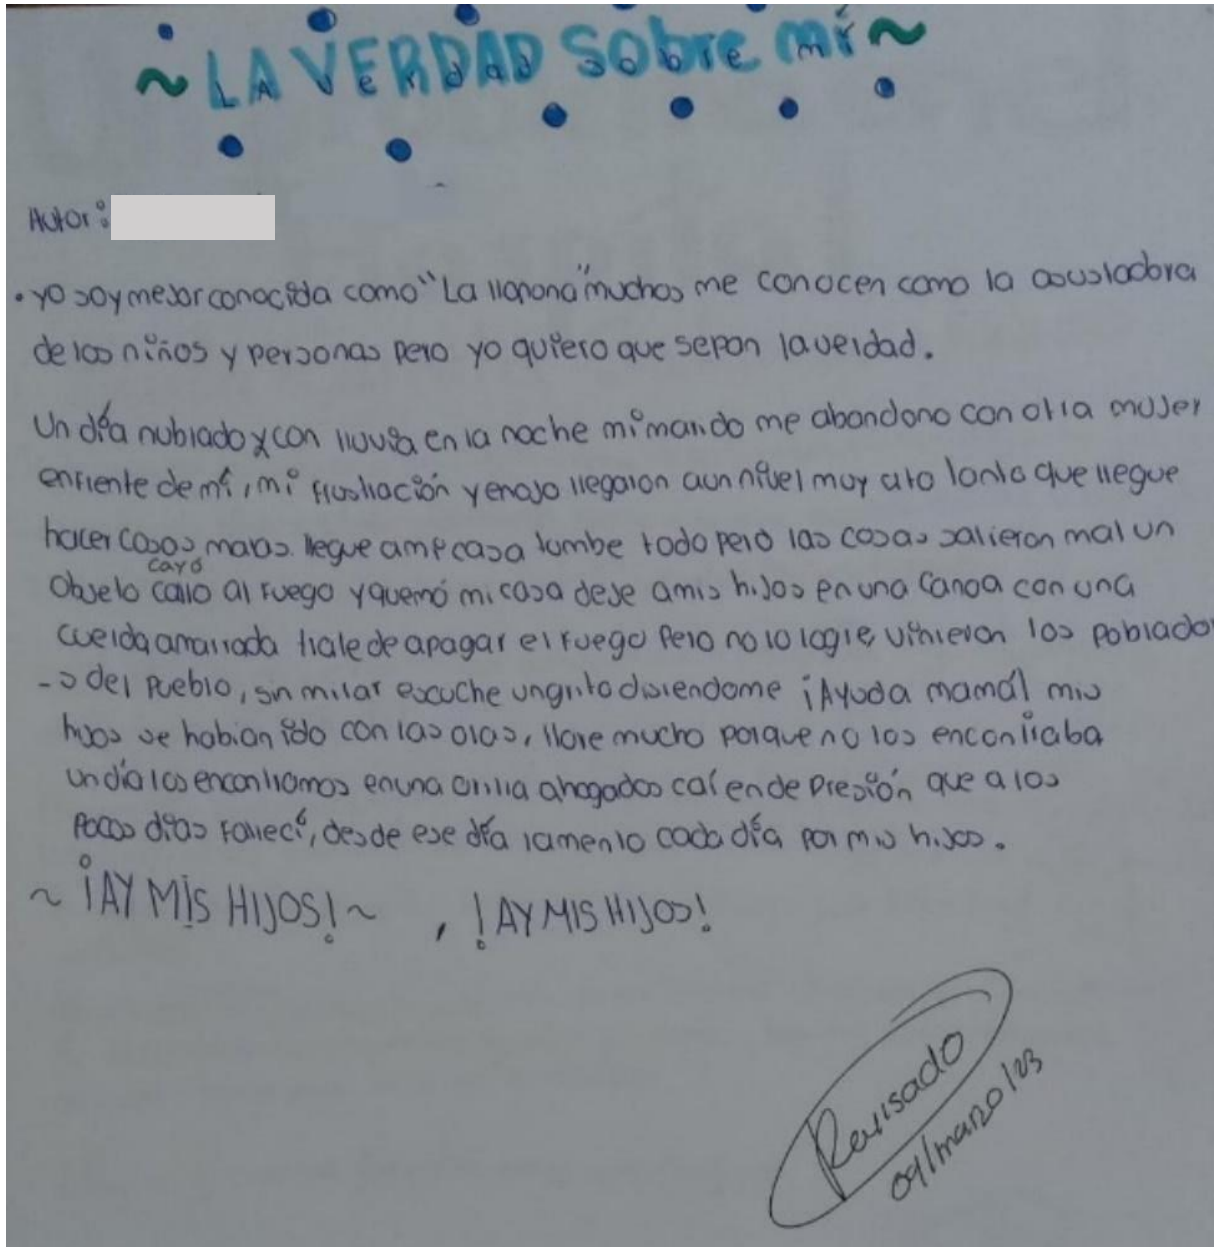 ~ LA VERDAD Sobre mí ~
Autor:
• yo soy mejor conocida como "La llorona" muchos me conocen como la asustadora
de los niños y personas pero yo quiero que sepan la verdad.
Un día nublado y con lluvia en la noche mi marido me abandono con otra mujer
enfrente de mí, mi frustración y enojo llegaron aun nivel muy alto tanto que llegue
hacer cosas malas. llegue ami casa tumbe todo pero las cosas salieron mal un
cayó
Objeto callo al fuego y quemó mi casa deje amis hijos en una canoa con una
cuerda amarrada trate de apagar el fuego Pero no lo logre, vinieron los poblado
-s del Pueblo, sin mirar escuche un grito disiendome ¡Ayuda mamá! mis
hijos se habian ido con las olas, llore mucho porque no los encontraba
un día los encontramos en una orilla ahogados caí en depresión que a los
Pocos días fallecí, desde ese día lamento cada día por mis hijos.
~ ¡AY MIS HIJOS! ~ , ¡AY MIS HIJOS!
Revisado
09/marzo/23